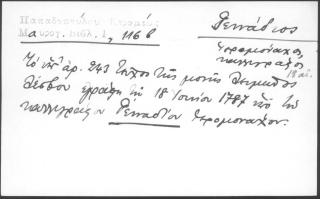 Παπαδοπούλου Κεραμέως
Μαυρογ. βιβλ. 1, 116 β
Γεννάδιος
ἱερομόναχος
καλλιγράφος
18 αἰ.
Τὸ ὑπ' ἀρ. 243 τεῦχος τῆς μονῆς Λειμῶνος
Λέσβου ἐγράφη τῇ 18 Ἰουνίου 1787 ὑπὸ τοῦ
καλλιγράφου Γενναδίου ἱερομονάχου.